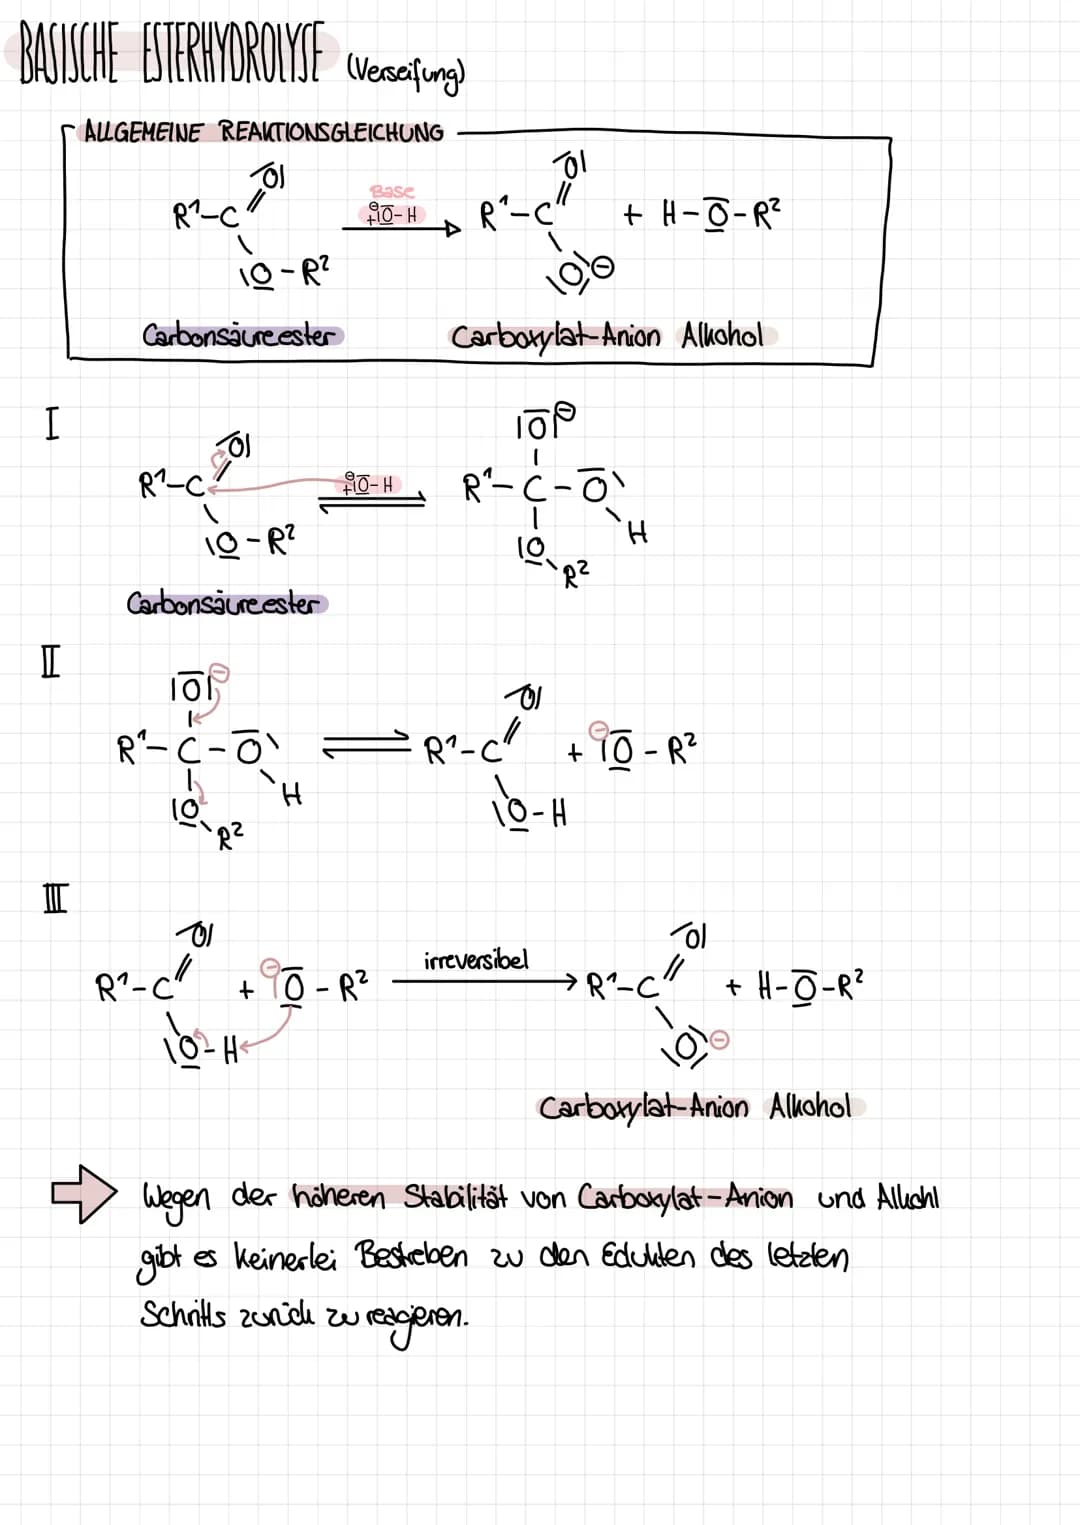 BASISCHE ESTERHYDROLYSE (Verseifung)
ALLGEMEINE REAKTIONSGLEICHUNG
R¹-C
|O-R²
Base
+ |O-H
R¹-C
+ H-O-R²
Carbonsäureester
Carboxylat-Anion Alkohol
I
R¹-C
|O-R²
+ |O-H
R¹-C-O
H
R²
Carbonsäureester
II
R¹-C-O
H
R²
R¹-C
|O-H
+ |O-R²
III
R¹-C
|O-H
+ |O-R²
irreversibel
R¹-C
+ H-O-R²
Carboxylat-Anion Alkohol
Wegen der höheren Stabilität von Carboxylat-Anion und Alkohl
gibt es keinerlei Bestreben zu den Edukten des letzten
Schritts zurück zu reagieren.